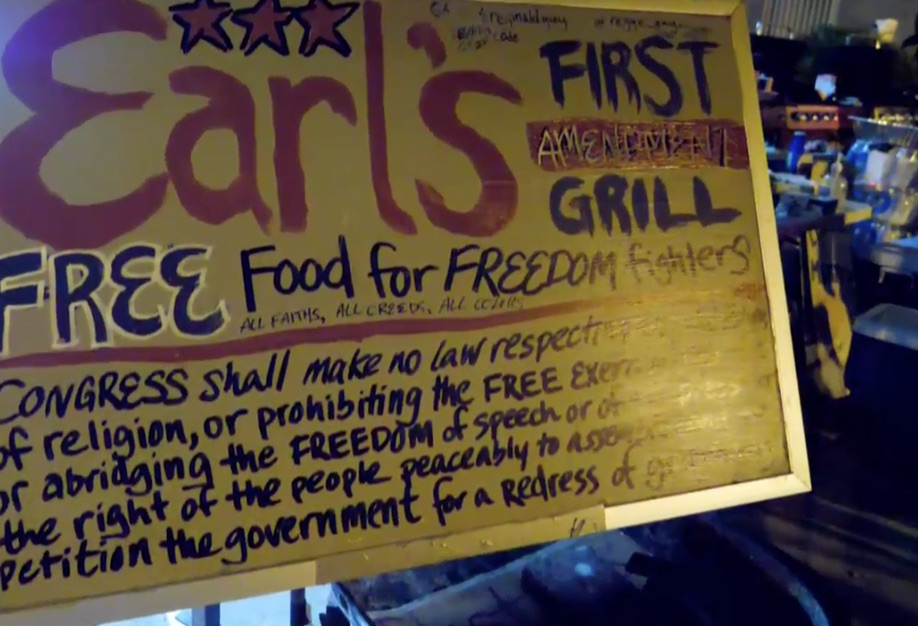 Earl's
FIRST
AMENDMENT
GRILL
FREE Food for FREEDOM fighters
ALL FAITHS, ALL CREEDS, ALL COLORS
CONGRESS shall make no law
of religion, or prohibiting the FREE
or abridging the FREEDOM of speech or of
the right of the people peaceably to
petition the government for a Redress of